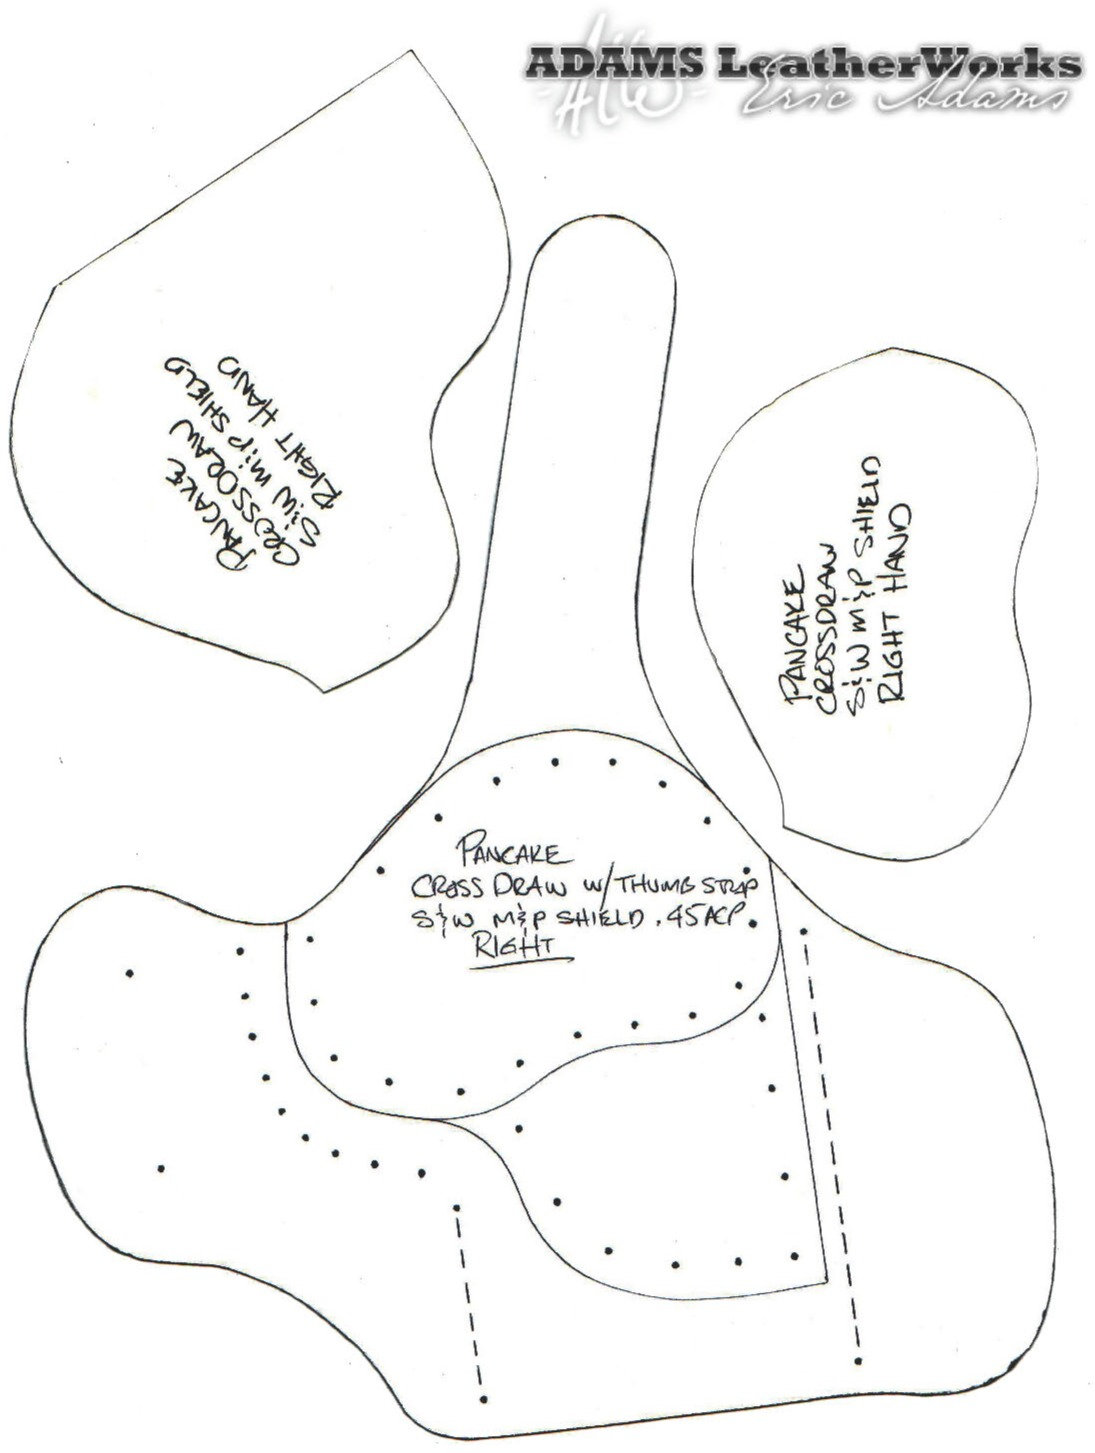 ADAMS LeatherWorks
Eric Adams
PANCAKE
CROSSDRAW
S&W M&P SHIELD
RIGHT HAND
PANCAKE
CROSSDRAW
S&W M&P SHIELD
RIGHT HAND
PANCAKE
CROSS DRAW W/THUMB STRAP
S&W M&P SHIELD .45 ACP
RIGHT